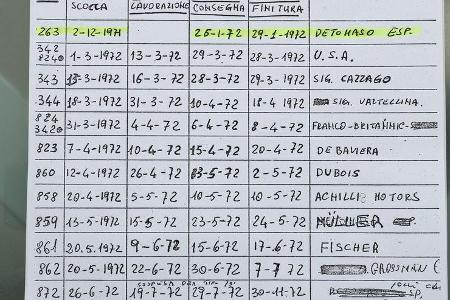 SCOCCA LAVORAZIONE CONSEGNA FINITURA
263 2-12-1971 25-1-72 29-1-1972 DETOMASO ESP.
342 8240 1-3-1972 13-3-72 29-3-72 28-3-1972 U.S.A.
343 13-3-1972 16-3-72 28-3-72 29-3-1972 SIG. CAZZAGO
344 18-3-1972 31-3-72 10-4-72 18-4 1972 SIG. VALTELLINA.
824 3420 31-3-1972 4-4-72 6-4-72 8-4-72 FRANCO-BRITANNIC-
823 7-4-1972 10-4-72 15-4-72 20-4-72 DE BAVIERA
860 12-4-1972 26-4-72 03-5-72 2-5-72 DUBOIS
858 20-4-1972 5-5-72 10-5-72 10-5-72 ACHILLI MOTORS
859 13-5-1972 15-5-72 23-5-72 24-5-72 MÜLLER
861 20.5.1972 9-6-72 15-6-72 17-6-72 FISCHER
862 20-5-1972 22-6-72 30-6-72 7-7 72 GROSSMAN (
872 26-6-72 19-7-72 29-7-72 30-11-72 SP.